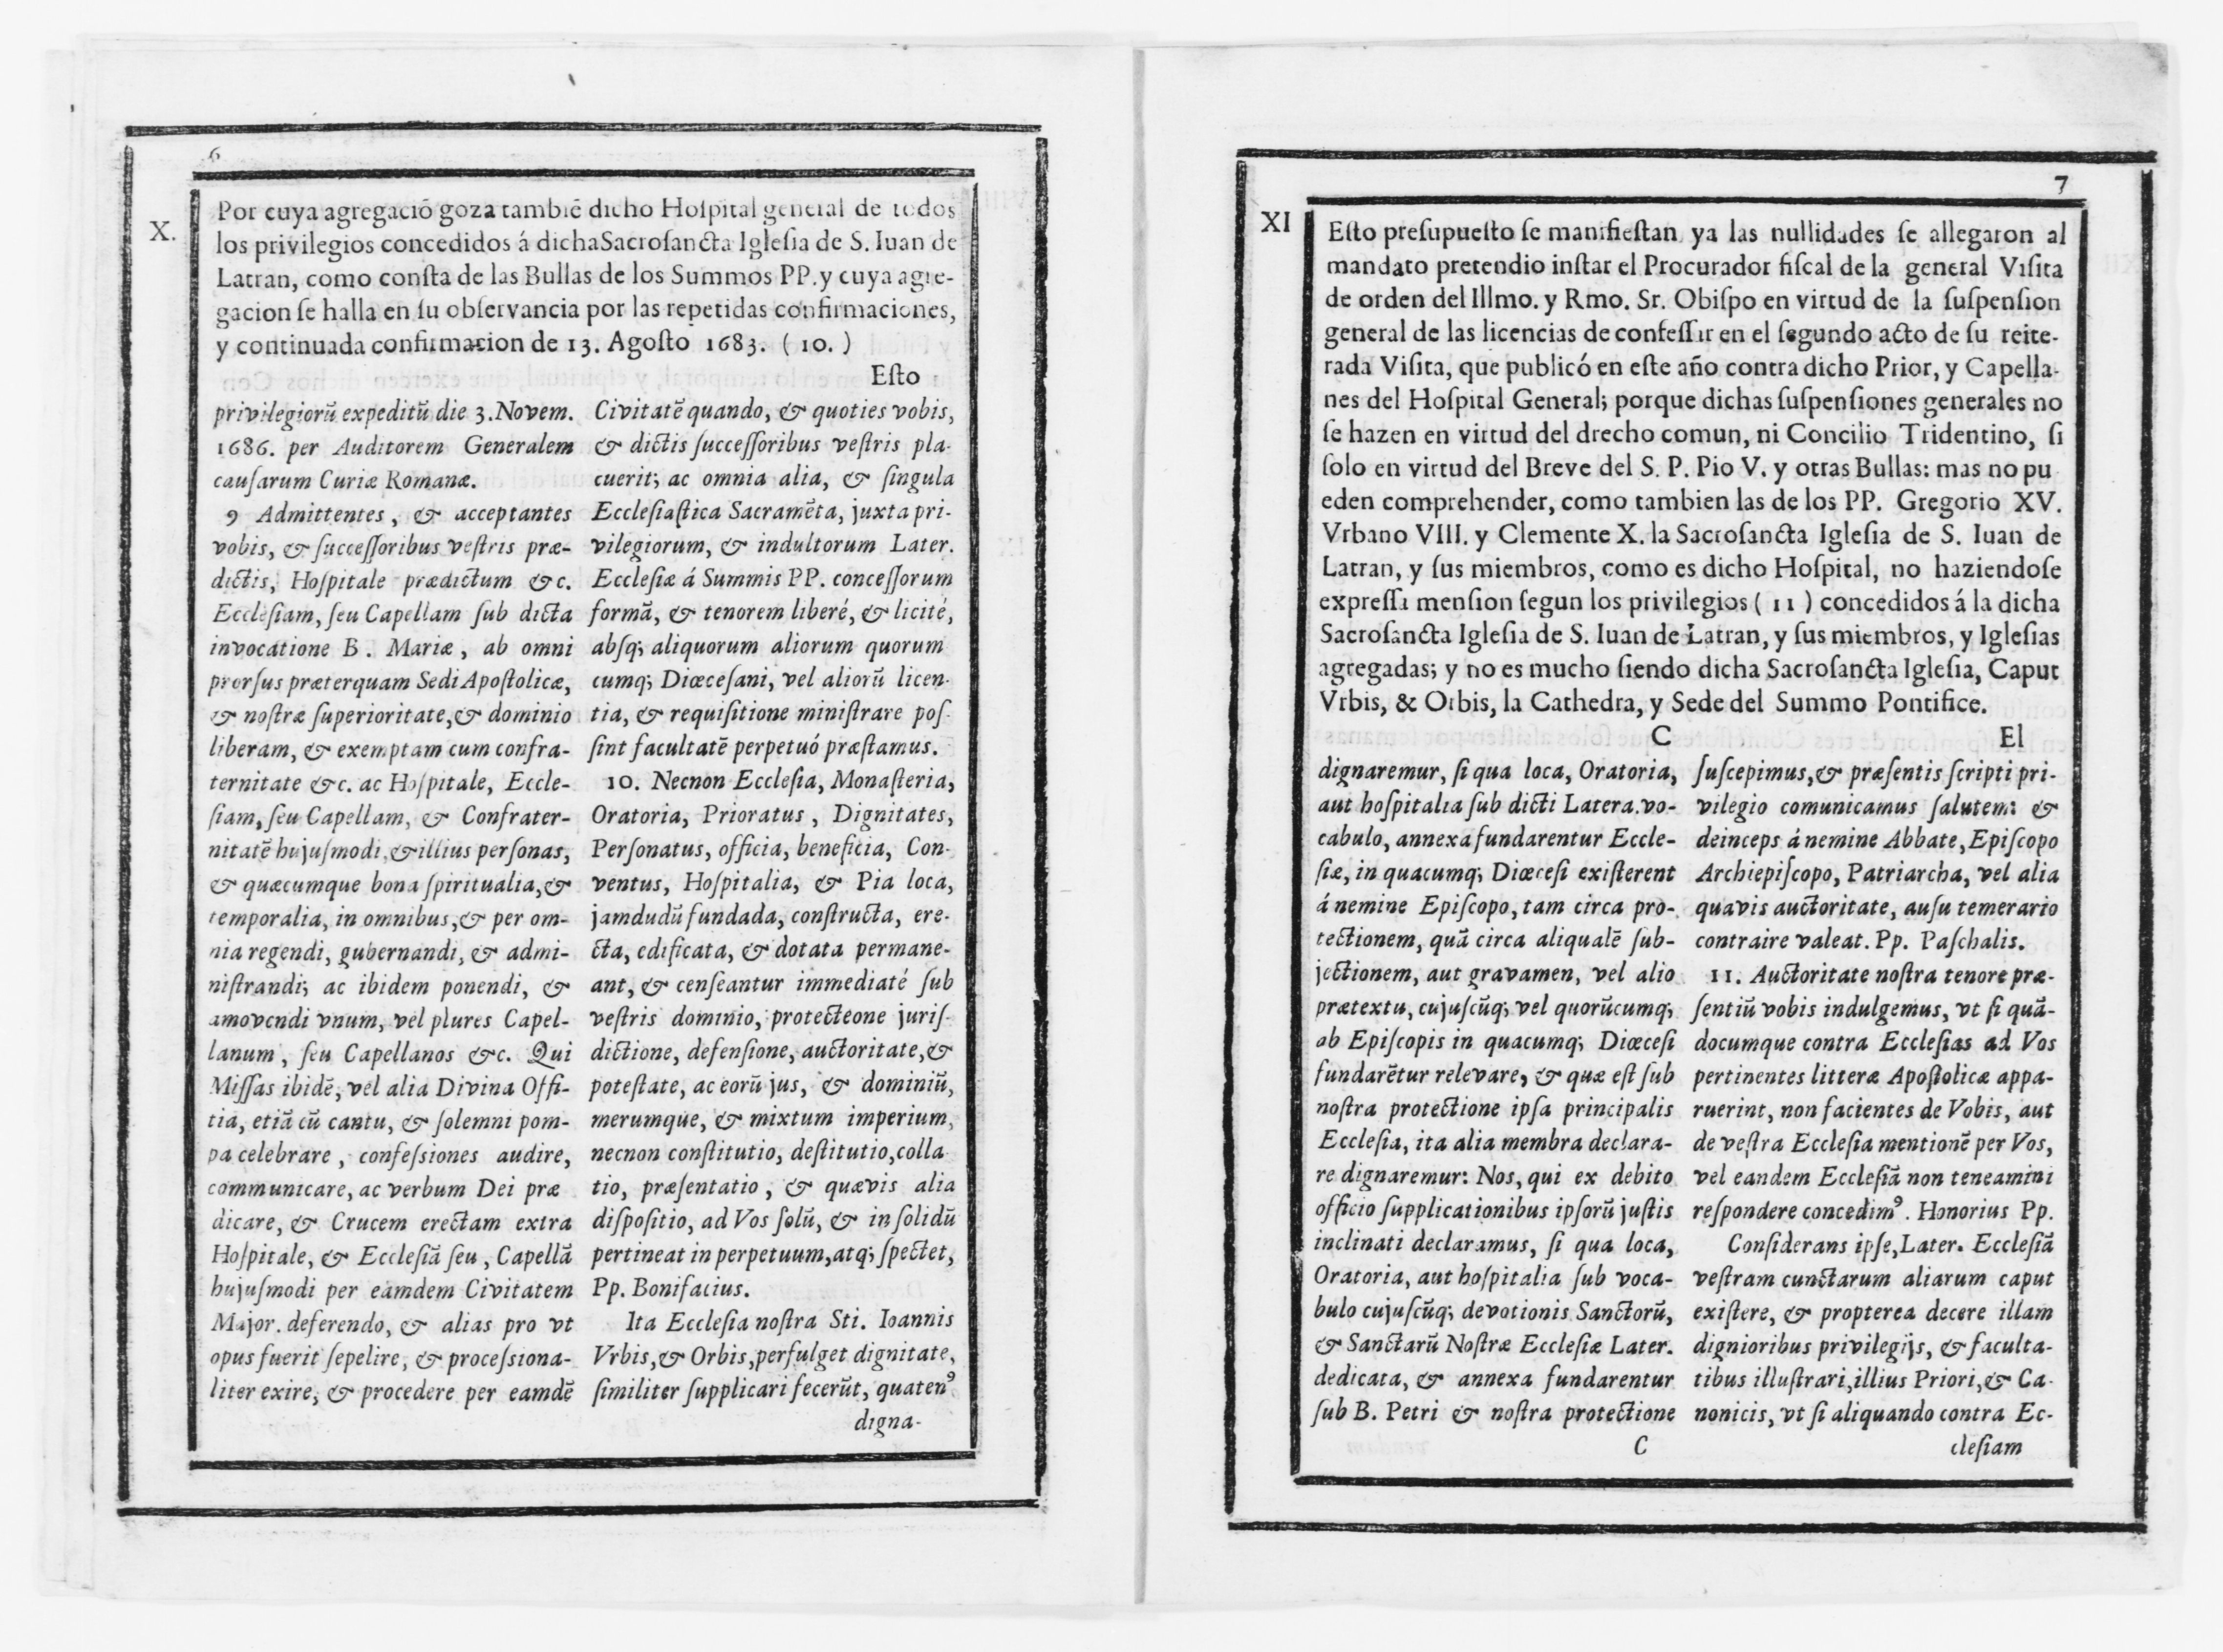 6
X.
Por cuya agregaciõ goza tambiẽ dicho Hoſpital general de todos
los privilegios concedidos á dichaSacroſancta Igleſia de S. Iuan de
Latran, como conſta de las Bullas de los Summos PP.y cuya agre-
gacion ſe halla en ſu obſervancia por las repetidas confirmaciones,
y continuada confirmacion de 13. Agoſto 1683. ( 10. )
Eſto
privilegiorũ expeditũ die 3.Novem.
1686. per Auditorem Generalem
cauſarum Curiæ Romanæ.
9 Admittentes, & acceptantes
vobis, & ſucceſſoribus veſtris præ-
dictis, Hoſpitale prædictum &c.
Eccleſiam, ſeu Capellam ſub dicta
invocatione B. Mariæ, ab omni
prorſus præterquam Sedi Apoſtolicæ,
& noſtræ ſuperioritate,& dominio
liberam, & exemptam cum confra-
ternitate &c. ac Hoſpitale, Eccle-
ſiam, ſeu Capellam, & Confrater-
nitatẽ hujuſmodi,& illius perſonas,
& quæcumque bona ſpiritualia,&
temporalia, in omnibus,& per om-
nia regendi, gubernandi, & admi-
niſtrandi; ac ibidem ponendi, &
amovendi vnum, vel plures Capel-
lanum, ſeu Capellanos &c. Qui
Miſſas ibidẽ, vel alia Divina Offi-
tia, etiã cũ cantu, & ſolemni pom-
pa celebrare, confeſsiones audire,
communicare, ac verbum Dei præ
dicare, & Crucem erectam extra
Hoſpitale, & Eccleſiã ſeu, Capellã
hujuſmodi per eamdem Civitatem
Major. deferendo, & alias pro vt
opus fuerit ſepelire, & proceſsiona-
liter exire, & procedere per eamdẽ
Civitatẽ quando, & quoties vobis,
& dictis ſucceſſoribus veſtris pla-
cuerit; ac omnia alia, & ſingula
Eccleſiaſtica Sacramẽta, juxta pri-
vilegiorum, & indultorum Later.
Eccleſiæ á Summis PP. conceſſorum
formã, & tenorem liberé, & licité,
abſq; aliquorum aliorum quorum
cumq; Diœceſani, vel aliorũ licen-
tia, & requiſitione miniſtrare poſ-
ſint facultatẽ perpetuó præſtamus.
10. Necnon Eccleſia, Monaſteria,
Oratoria, Prioratus, Dignitates,
Perſonatus, officia, beneficia, Con-
ventus, Hoſpitalia, & Pia loca,
jamdudũ fundada, conſtructa, ere-
cta, edificata, & dotata permane-
ant, & cenſeantur immediaté ſub
veſtris dominio, protecteone juriſ-
dictione, defenſione, auctoritate,&
poteſtate, ac eorũ jus, & dominiũ,
merumque, & mixtum imperium,
necnon conſtitutio, deſtitutio,colla
tio, præſentatio, & quævis alia
diſpoſitio, ad Vos ſolũ, & in ſolidũ
pertineat in perpetuum,atq; ſpectet,
Pp. Bonifacius.
Ita Eccleſia noſtra Sti. Ioannis
Vrbis,& Orbis,perfulget dignitate,
ſimiliter ſupplicari fecerũt, quatenꝰ
digna-
7
XI
Eſto preſupueſto ſe manifieſtan ya las nullidades ſe allegaron al
mandato pretendio inſtar el Procurador fiſcal de la general Viſita
de orden del Illmo. y Rmo. Sr. Obiſpo en virtud de la ſuſpenſion
general de las licencias de confeſſar en el ſegundo acto de ſu reite-
rada Viſita, que publicó en eſte año contra dicho Prior, y Capella-
nes del Hoſpital General; porque dichas ſuſpenſiones generales no
ſe hazen en virtud del drecho comun, ni Concilio Tridentino, ſi
ſolo en virtud del Breve del S. P. Pio V. y otras Bullas: mas no pu
eden comprehender, como tambien las de los PP. Gregorio XV.
Vrbano VIII. y Clemente X. la Sacroſancta Igleſia de S. Iuan de
Latran, y ſus miembros, como es dicho Hoſpital, no haziendoſe
expreſſa menſion ſegun los privilegios ( 11 ) concedidos á la dicha
Sacroſancta Igleſia de S. Iuan de Latran, y ſus miembros, y Igleſias
agregadas; y no es mucho ſiendo dicha Sacroſancta Igleſia, Caput
Vrbis, & Orbis, la Cathedra, y Sede del Summo Pontifice.
C El
dignaremur, ſi qua loca, Oratoria,
aut hoſpitalia ſub dicti Latera.vo-
cabulo, annexa fundarentur Eccle-
ſiæ, in quacumq; Diœceſi exiſterent
á nemine Epiſcopo, tam circa pro-
tectionem, quã circa aliqualẽ ſub-
jectionem, aut gravamen, vel alio
prætextu, cujuſcũq; vel quorũcumq;
ab Epiſcopis in quacumq; Diœceſi
fundarẽtur relevare, & quæ eſt ſub
noſtra protectione ipſa principalis
Eccleſia, ita alia membra declara-
re dignaremur: Nos, qui ex debito
officio ſupplicationibus ipſorũ juſtis
inclinati declaramus, ſi qua loca,
Oratoria, aut hoſpitalia ſub voca-
bulo cujuſcũq; devotionis Sanctorũ,
& Sanctarũ Noſtræ Eccleſiæ Later.
dedicata, & annexa fundarentur
ſub B. Petri & noſtra protectione
ſuſcepimus,& præſentis ſcripti pri-
vilegio comunicamus ſalutem: &
deinceps á nemine Abbate, Epiſcopo
Archiepiſcopo, Patriarcha, vel alia
quavis auctoritate, auſu temerario
contraire valeat. Pp. Paſchalis.
11. Auctoritate noſtra tenore præ-
ſentiũ vobis indulgemus, vt ſi quã-
documque contra Eccleſias ad Vos
pertinentes litteræ Apoſtolicæ appa-
ruerint, non facientes de Vobis, aut
de veſtra Eccleſia mentionẽ per Vos,
vel eandem Eccleſiã non teneamini
reſpondere concedimꝰ. Honorius Pp.
Conſiderans ipſe,Later. Eccleſiã
veſtram cunctarum aliarum caput
exiſtere, & propterea decere illam
dignioribus privilegijs, & faculta-
tibus illuſtrari,illius Priori,& Ca-
nonicis, vt ſi aliquando contra Ec-
C cleſiam